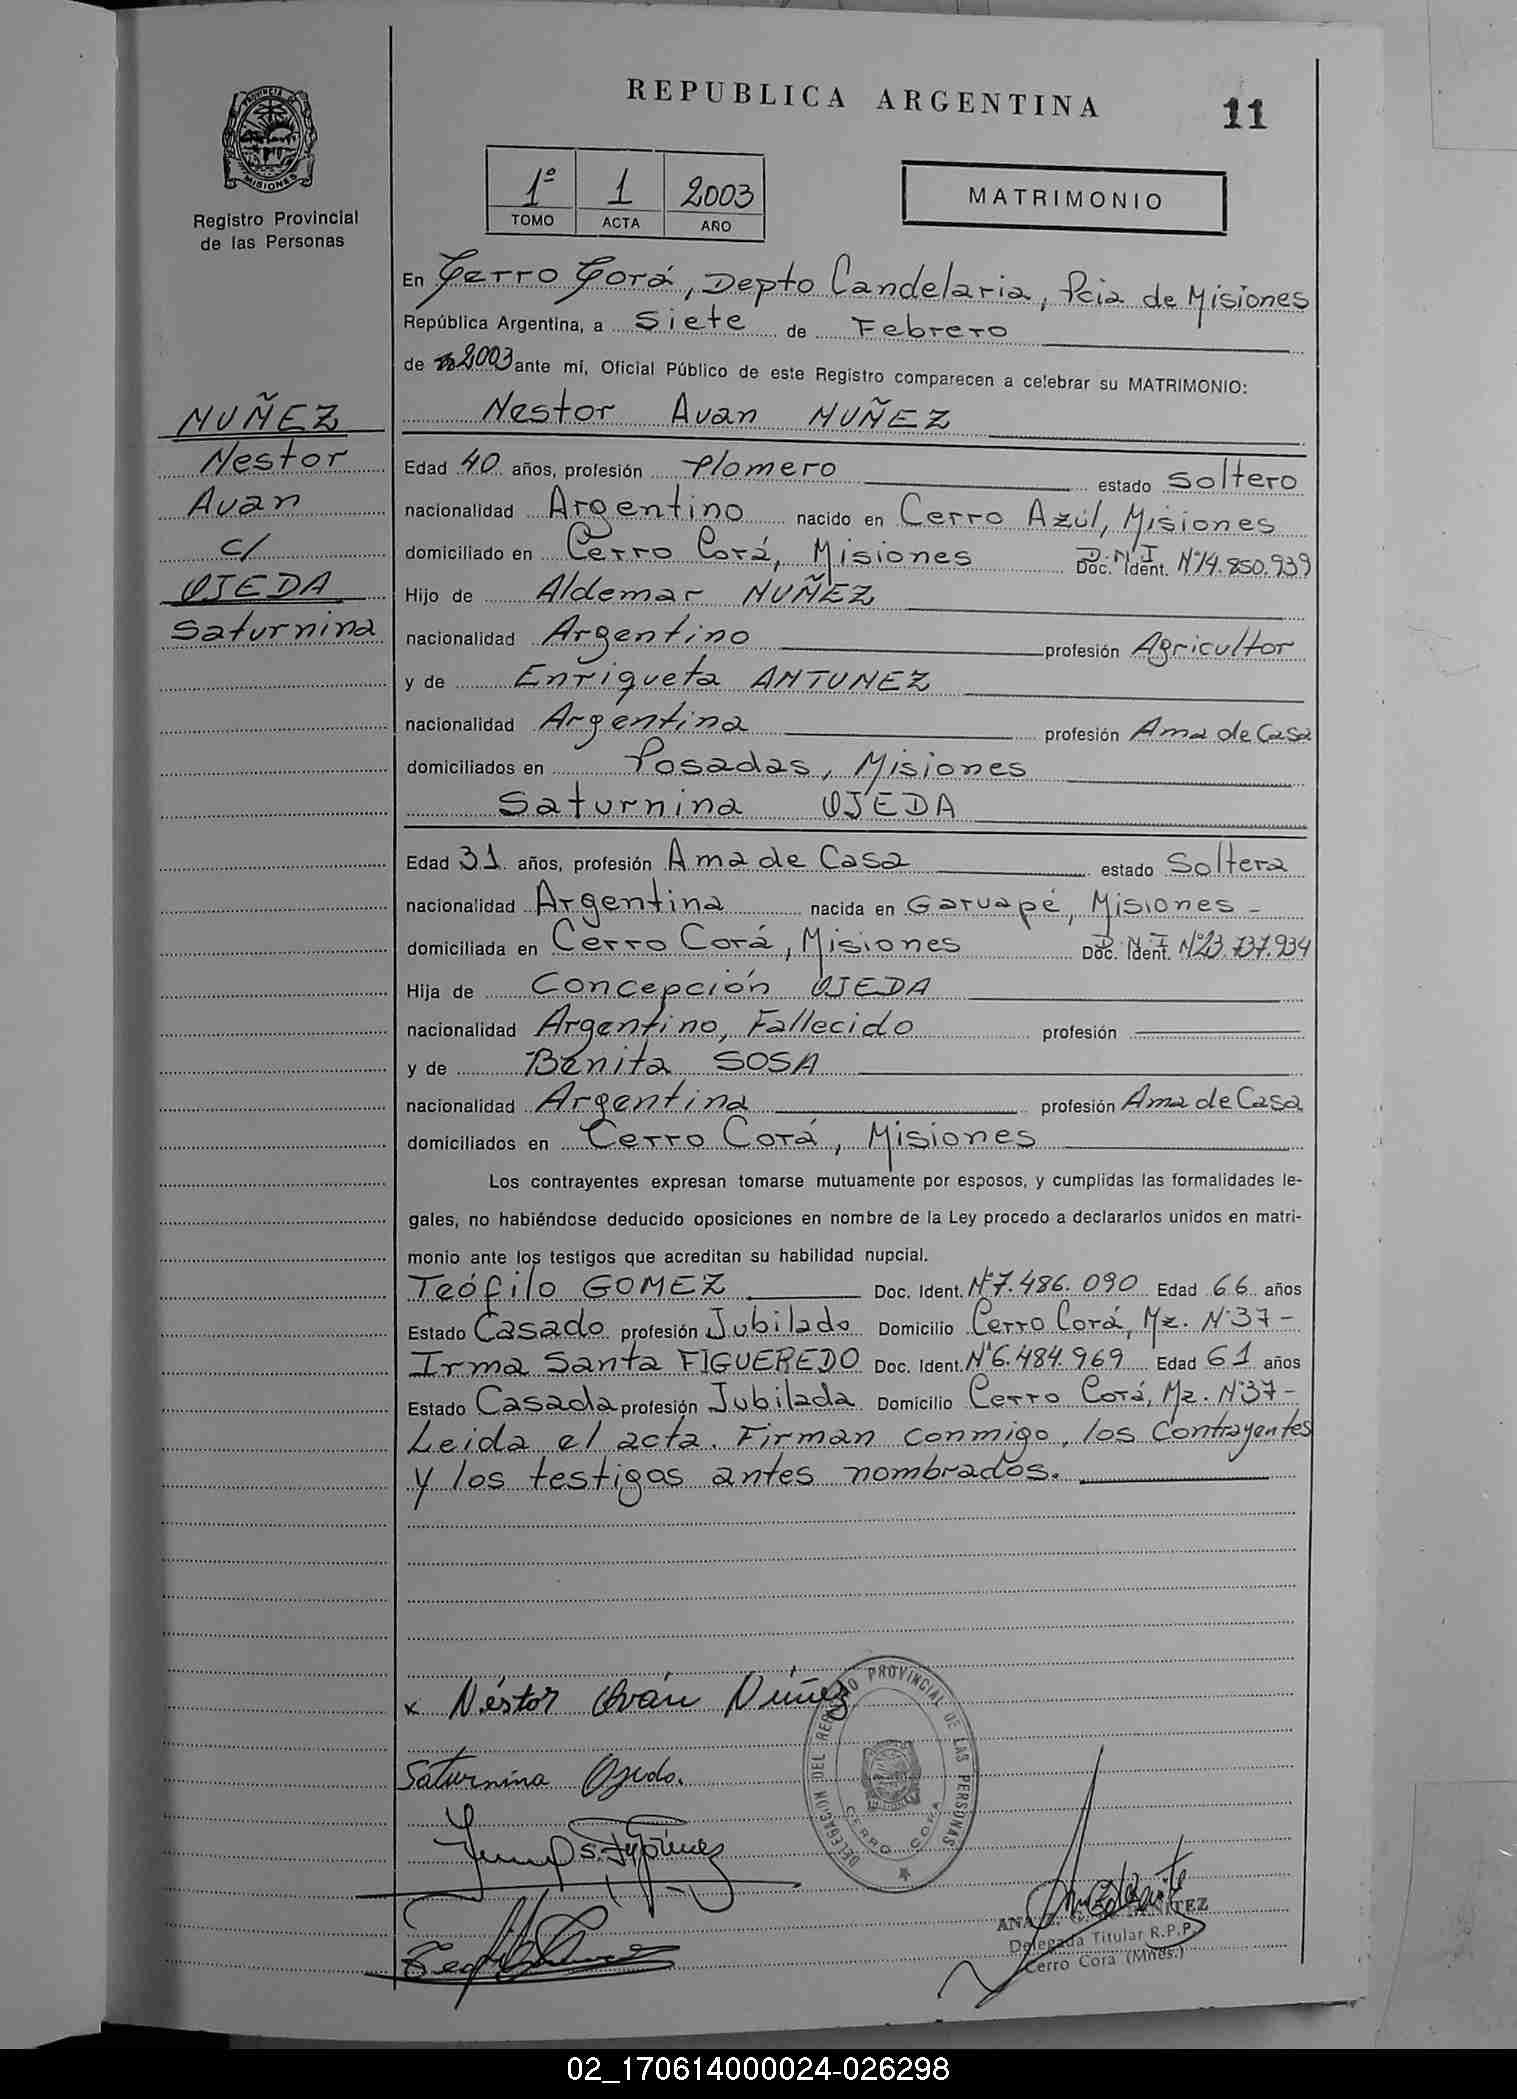 REPUBLICA ARGENTINA
11
PROVINCIA DE
MISIONES
Registro Provincial
de las Personas
1º 1 2003
TOMO ACTA AÑO
MATRIMONIO
En Cerro Corá, Depto Candelaria, Pcia de Misiones
República Argentina, a Siete de Febrero
de 2003 ante mí, Oficial Público de este Registro comparecen a celebrar su MATRIMONIO:
NUÑEZ
Nestor
Avan
c/
OJEDA
Saturnina
Nestor Avan NUÑEZ
Edad 40 años, profesión Plomero estado Soltero
nacionalidad Argentino nacido en Cerro Azúl, Misiones
domiciliado en Cerro Corá, Misiones D.N.I Doc. Ident. Nº14.850.939
Hijo de Aldemar NUÑEZ
nacionalidad Argentino profesión Agricultor
y de Enriqueta ANTUNEZ
nacionalidad Argentina profesión Ama de Casa
domiciliados en Posadas, Misiones
Saturnina OJEDA
Edad 31 años, profesión Ama de Casa estado Soltera
nacionalidad Argentina nacida en Garuapé, Misiones -
domiciliada en Cerro Corá, Misiones D.N.I Doc. Ident. Nº23.737.934
Hija de Concepción OJEDA
nacionalidad Argentino, Fallecido profesión
y de Benita SOSA
nacionalidad Argentina profesión Ama de Casa
domiciliados en Cerro Corá, Misiones
Los contrayentes expresan tomarse mutuamente por esposos, y cumplidas las formalidades le-
gales, no habiéndose deducido oposiciones en nombre de la Ley procedo a declararlos unidos en matri-
monio ante los testigos que acreditan su habilidad nupcial.
Teófilo GOMEZ Doc. Ident. Nº7.486.090 Edad 66 años
Estado Casado profesión Jubilado Domicilio Cerro Corá, Mz. Nº37-
Irma Santa FIGUEREDO Doc. Ident. Nº6.484.969 Edad 61 años
Estado Casada profesión Jubilada Domicilio Cerro Corá, Mz. Nº37-
Leida el acta. Firman conmigo, los Contrayentes
y los testigos antes nombrados.
x Néstor Aván Núñez
DELEGACION DEL REGISTRO PROVINCIAL DE LAS PERSONAS
CERRO CORA
Saturnina Ojeda.
ANA Z. G. DE BENITEZ
Delegada Titular R.P.P.
Cerro Cora (Mnes.)
02_170614000024-026298